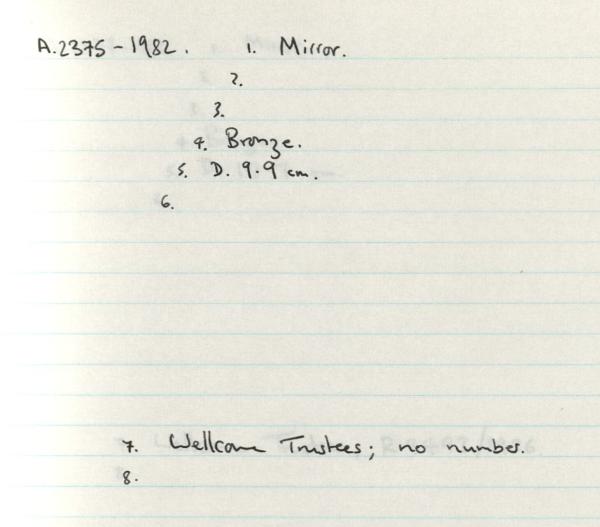 A.2375-1982. 1. Mirror.
2.
3.
4. Bronze.
5. D. 9.9 cm.
6.
7. Wellcome Trustees; no number.
8.